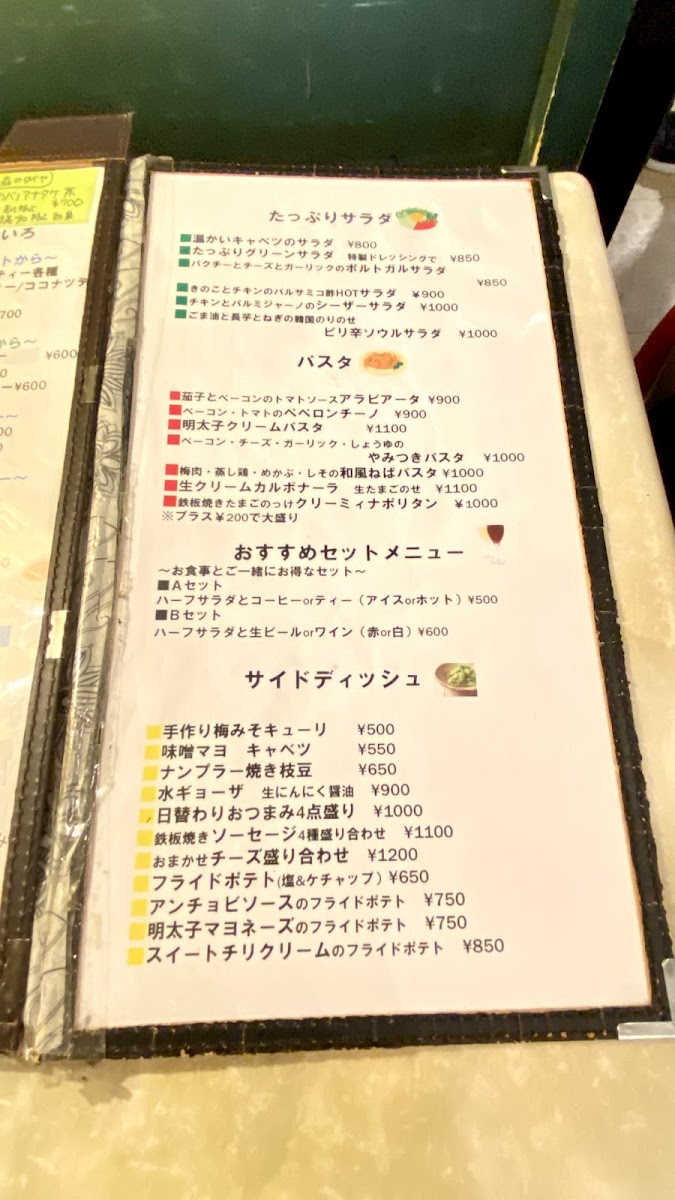 茶
¥700
いろ
トから～
ティー各種
ー/ココナツテ
700
から～
ー ¥600
ー¥600
たっぷりサラダ
■温かいキャベツのサラダ ¥800
■たっぷりグリーンサラダ 特製ドレッシングで ¥850
■パクチーとチーズとガーリックのポルトガルサラダ
¥850
■きのことチキンのバルサミコ酢HOTサラダ ¥900
■チキンとパルミジャーノのシーザーサラダ ¥1000
■ごま油と長芋とねぎの韓国のりのせ
ピリ辛ソウルサラダ ¥1000
パスタ
■茄子とベーコンのトマトソースアラビアータ ¥900
■ベーコン・トマトのペペロンチーノ ¥900
■明太子クリームパスタ ¥1100
■ベーコン・チーズ・ガーリック・しょうゆの
やみつきパスタ ¥1000
■梅肉・蒸し鶏・めかぶ・しその和風ねばパスタ ¥1000
■生クリームカルボナーラ 生たまごのせ ¥1100
■鉄板焼きたまごのっけクリーミィナポリタン ¥1000
※プラス¥200で大盛り
おすすめセットメニュー
～お食事とご一緒にお得なセット～
■Aセット
ハーフサラダとコーヒーorティー（アイスorホット）¥500
■Bセット
ハーフサラダと生ビールorワイン（赤or白）¥600
サイドディッシュ
■手作り梅みそキューリ ¥500
■味噌マヨ キャベツ ¥550
■ナンプラー焼き枝豆 ¥650
■水ギョーザ 生にんにく醤油 ¥900
■日替わりおつまみ4点盛り ¥1000
■鉄板焼きソーセージ4種盛り合わせ ¥1100
■おまかせチーズ盛り合わせ ¥1200
■フライドポテト(塩&ケチャップ) ¥650
■アンチョビソースのフライドポテト ¥750
■明太子マヨネーズのフライドポテト ¥750
■スイートチリクリームのフライドポテト ¥850